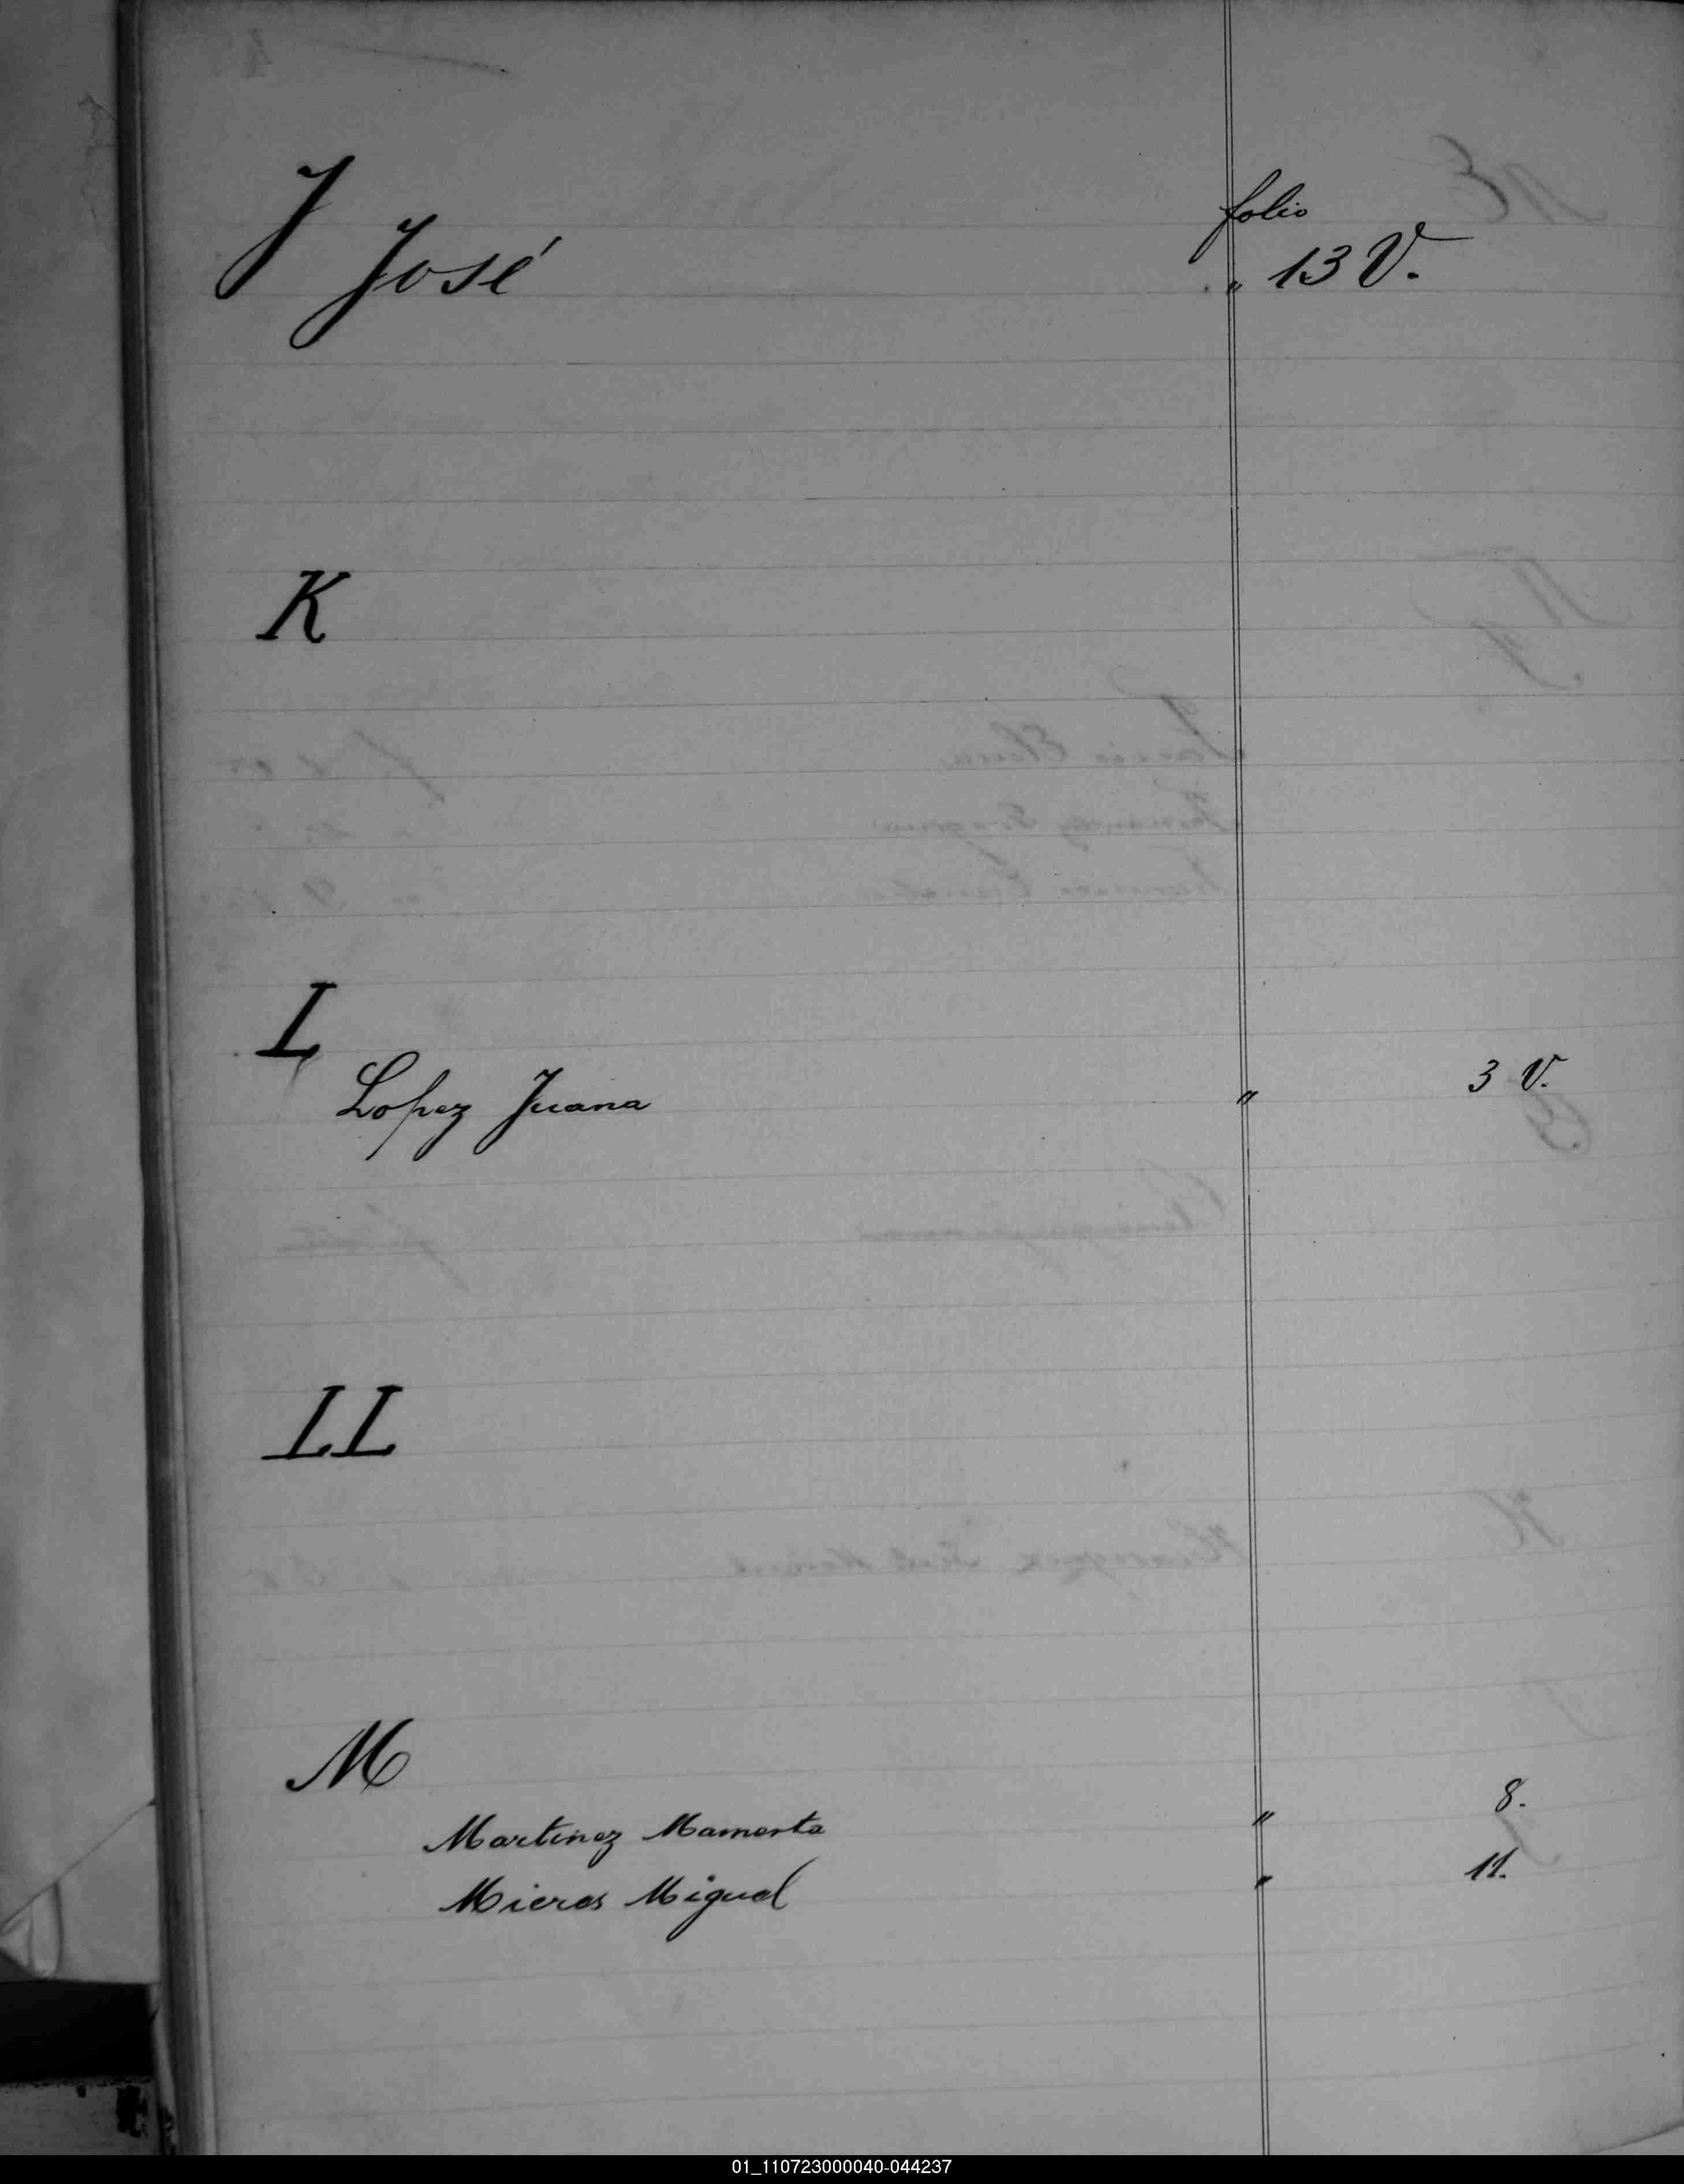 J
folio
José " 13 V.
K
L
Lopez Juana " 3 V.
LL
M
Martinez Mamerta " 8.
Mieres Miguel " 11.
01_110723000040-044237